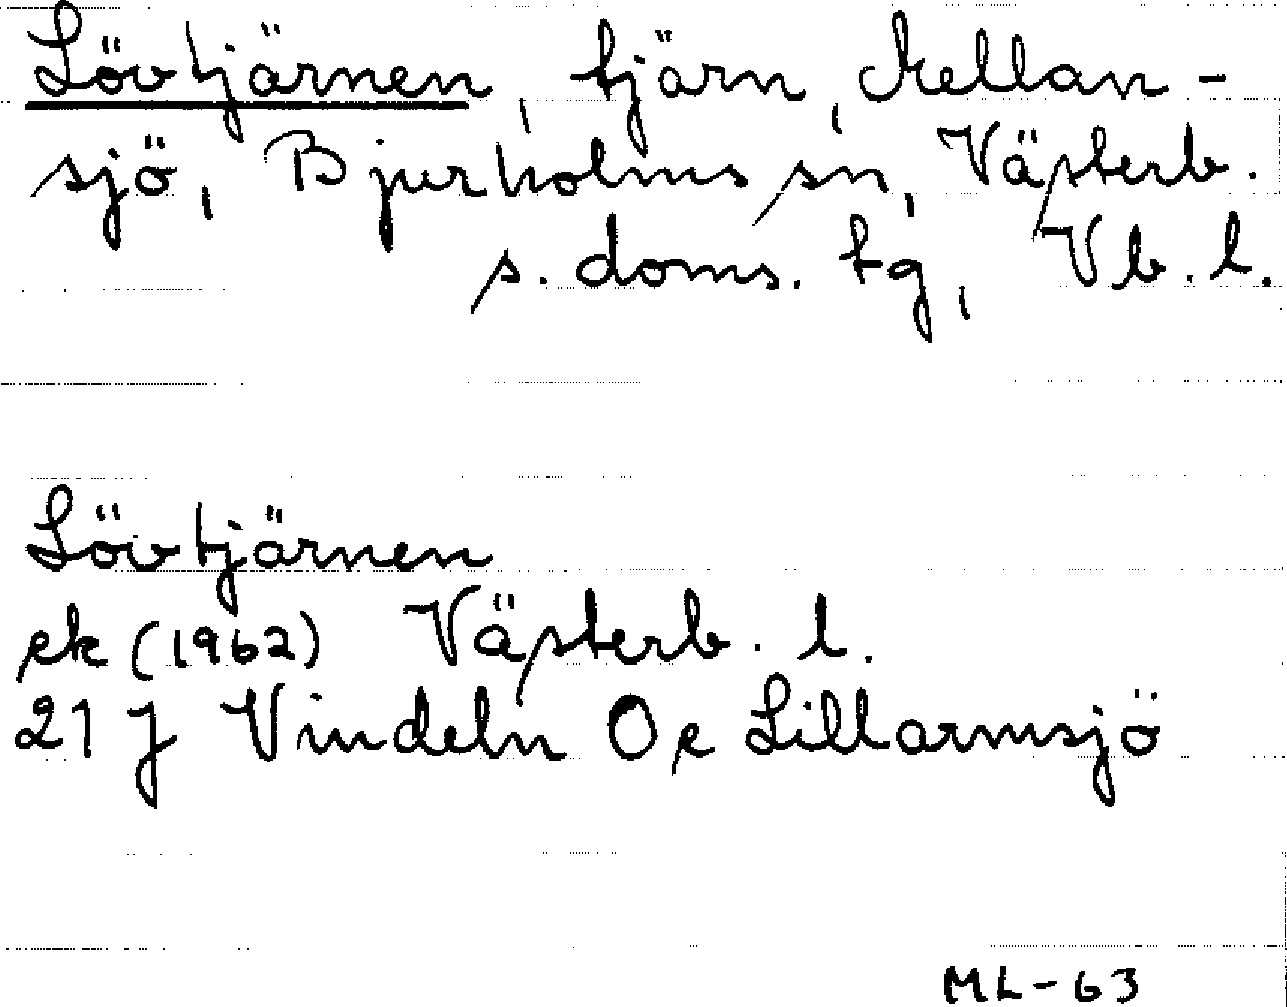 Lövtjärnen, tjärn, Mellan-
sjö, Bjurholms sn, Västerb.
s. doms. tg, Vb. l.
Lövtjärnen
ek (1962) Västerb. l.
21 J Vindeln Oe Lillarmsjö
ML-63